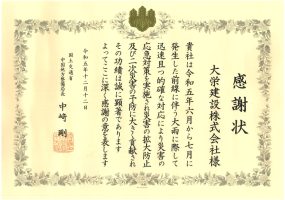 感謝状
大栄建設株式会社様
貴社は令和五年六月から七月に
発生した前線に伴う大雨に際して
迅速且つ的確な対応により災害の
応急対策を実施され災害の拡大防止
及び二次災害の予防に大きく貢献され
その功績は誠に顕著であります
よってここに深く感謝の意を表します
令和五年十二月十二日
国土交通省
中国地方整備局長
中﨑剛